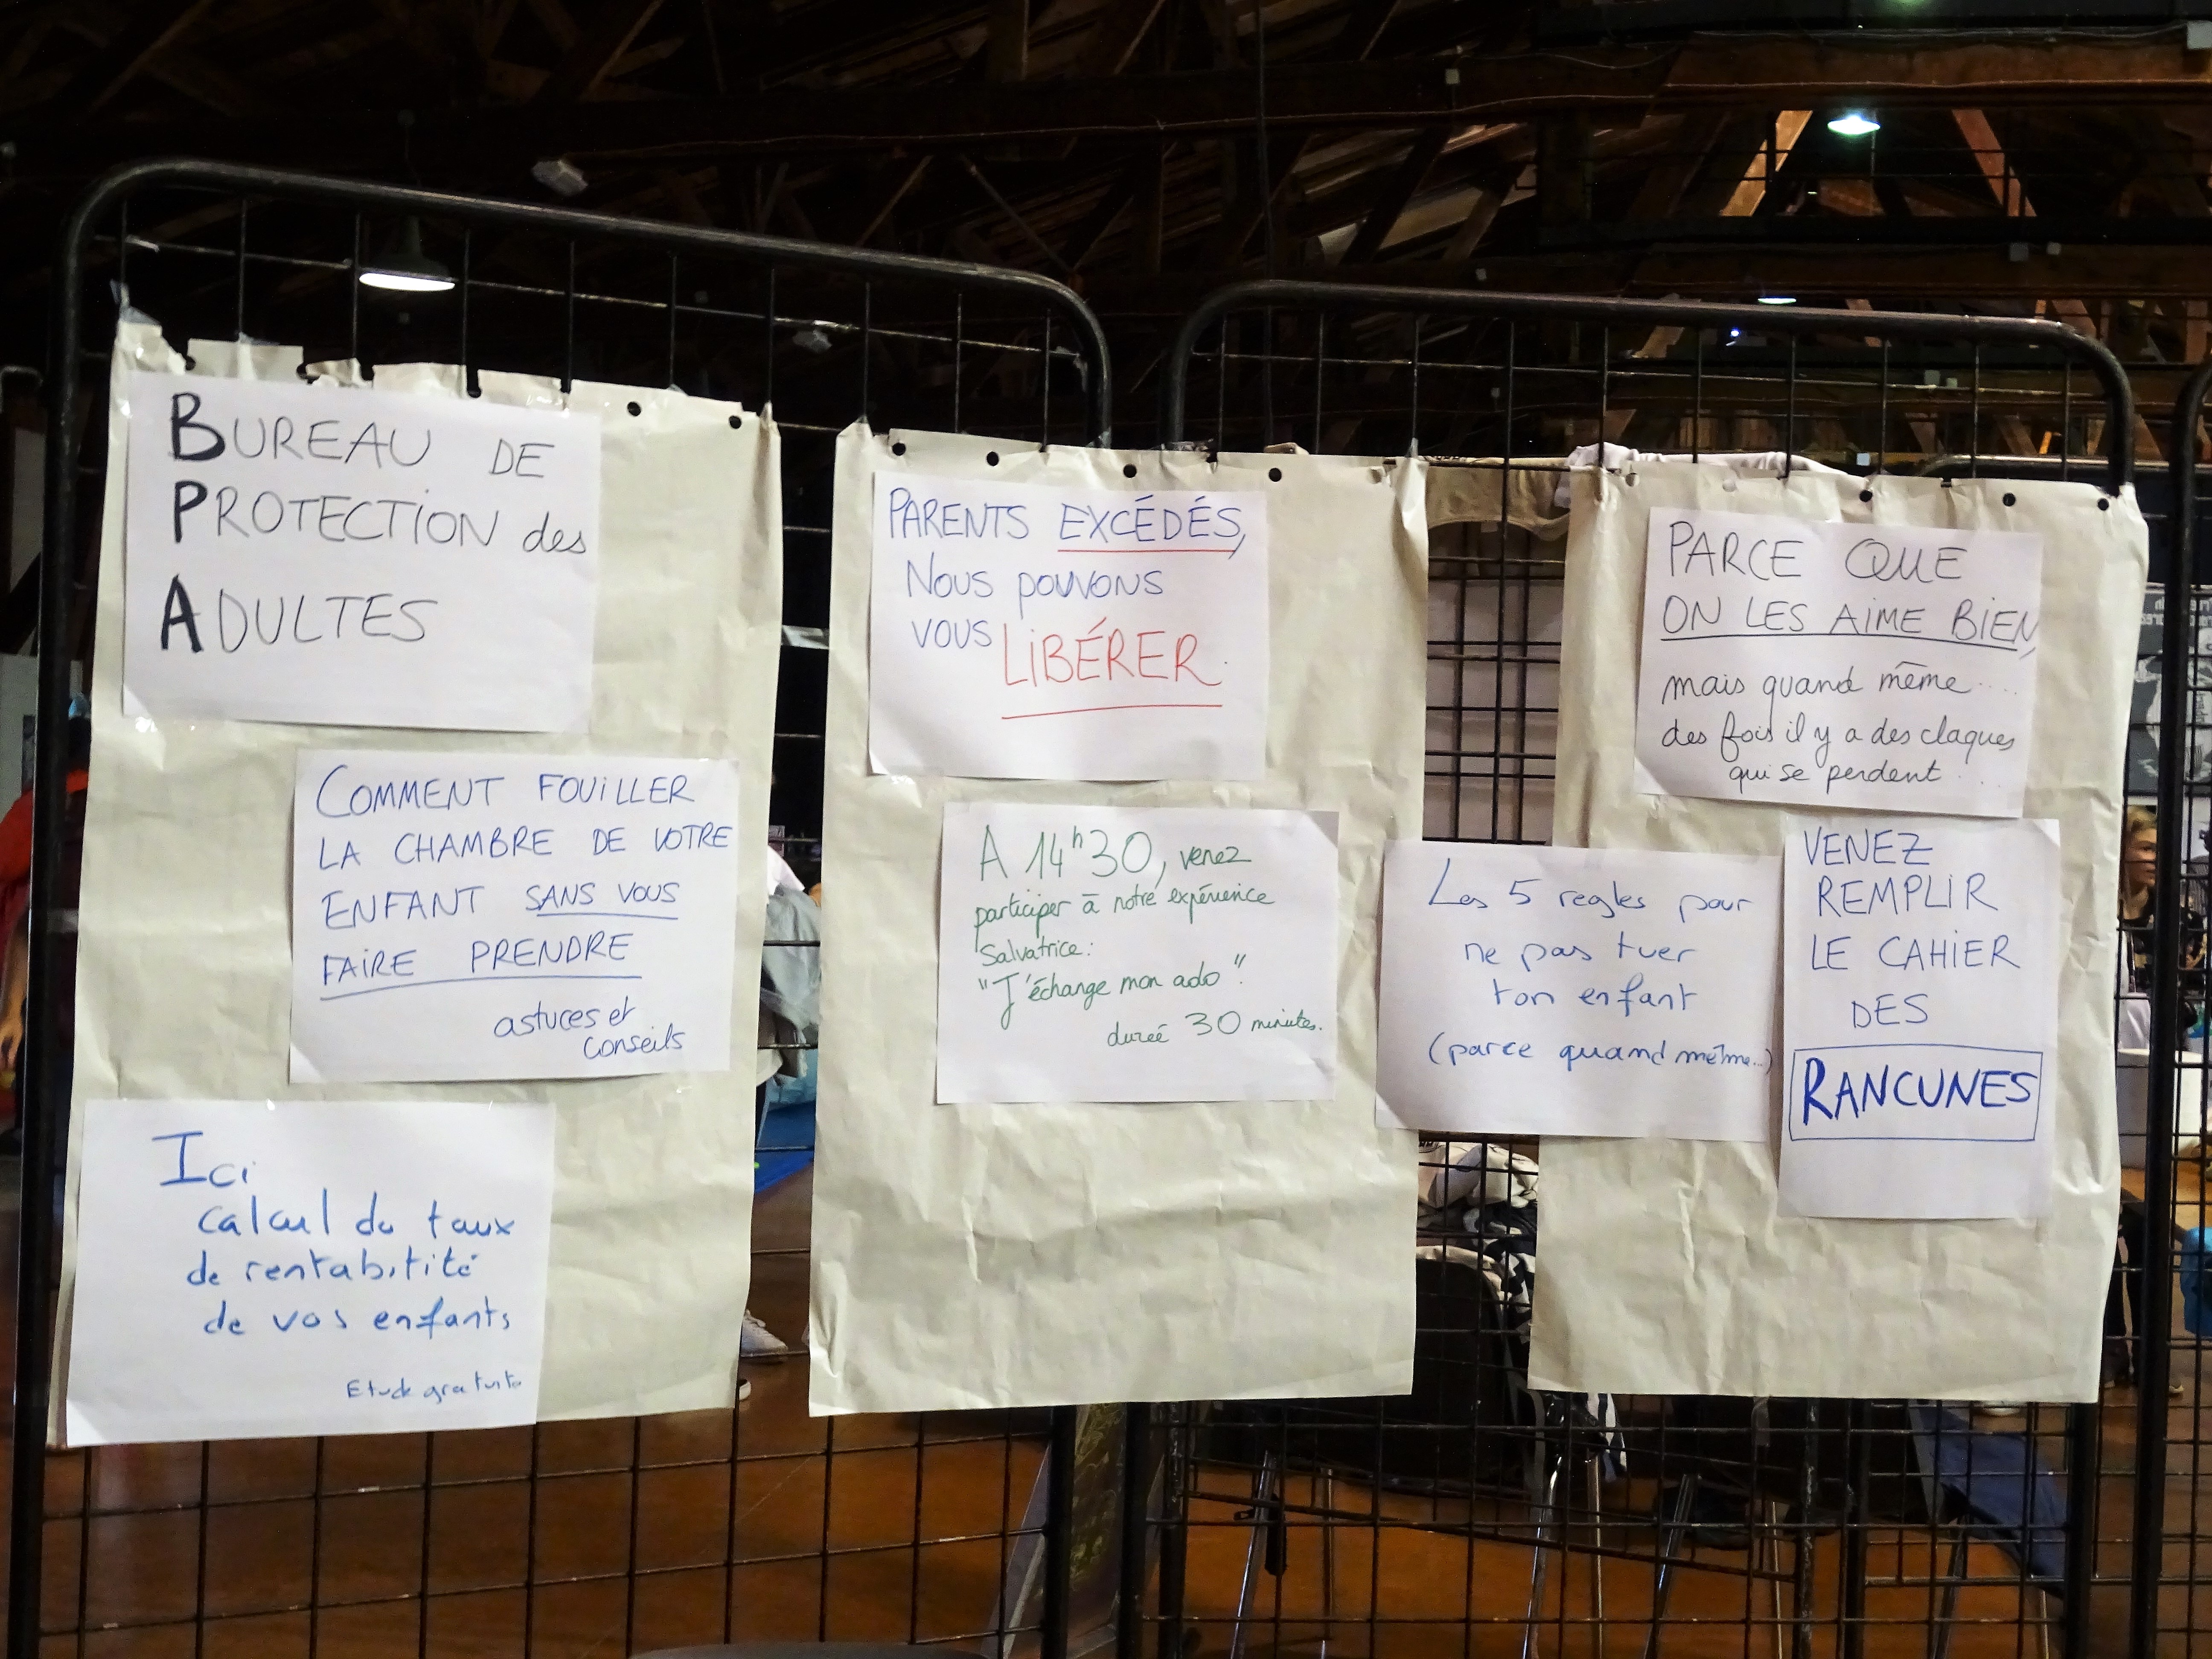 BUREAU DE
PROTECTION des
ADULTES
COMMENT FOUILLER
LA CHAMBRE DE VOTRE
ENFANT SANS VOUS
FAIRE PRENDRE
astuces et
conseils
Ici
calcul du taux
de rentabitité
de vos enfants
Etude gratuite
PARENTS EXCÉDÉS,
Nous pouvons
vous LIBÉRER.
A 14h30, venez
participer à notre expérience
Salvatrice:
"J'échange mon ado".
dureé 30 minutes.
Les 5 regles pour
ne pas tuer
ton enfant
(parce quand même...)
PARCE QUE
ON LES AIME BIEN,
mais quand même....
des fois il y a des claques
qui se perdent...
VENEZ
REMPLIR
LE CAHIER
DES
RANCUNES